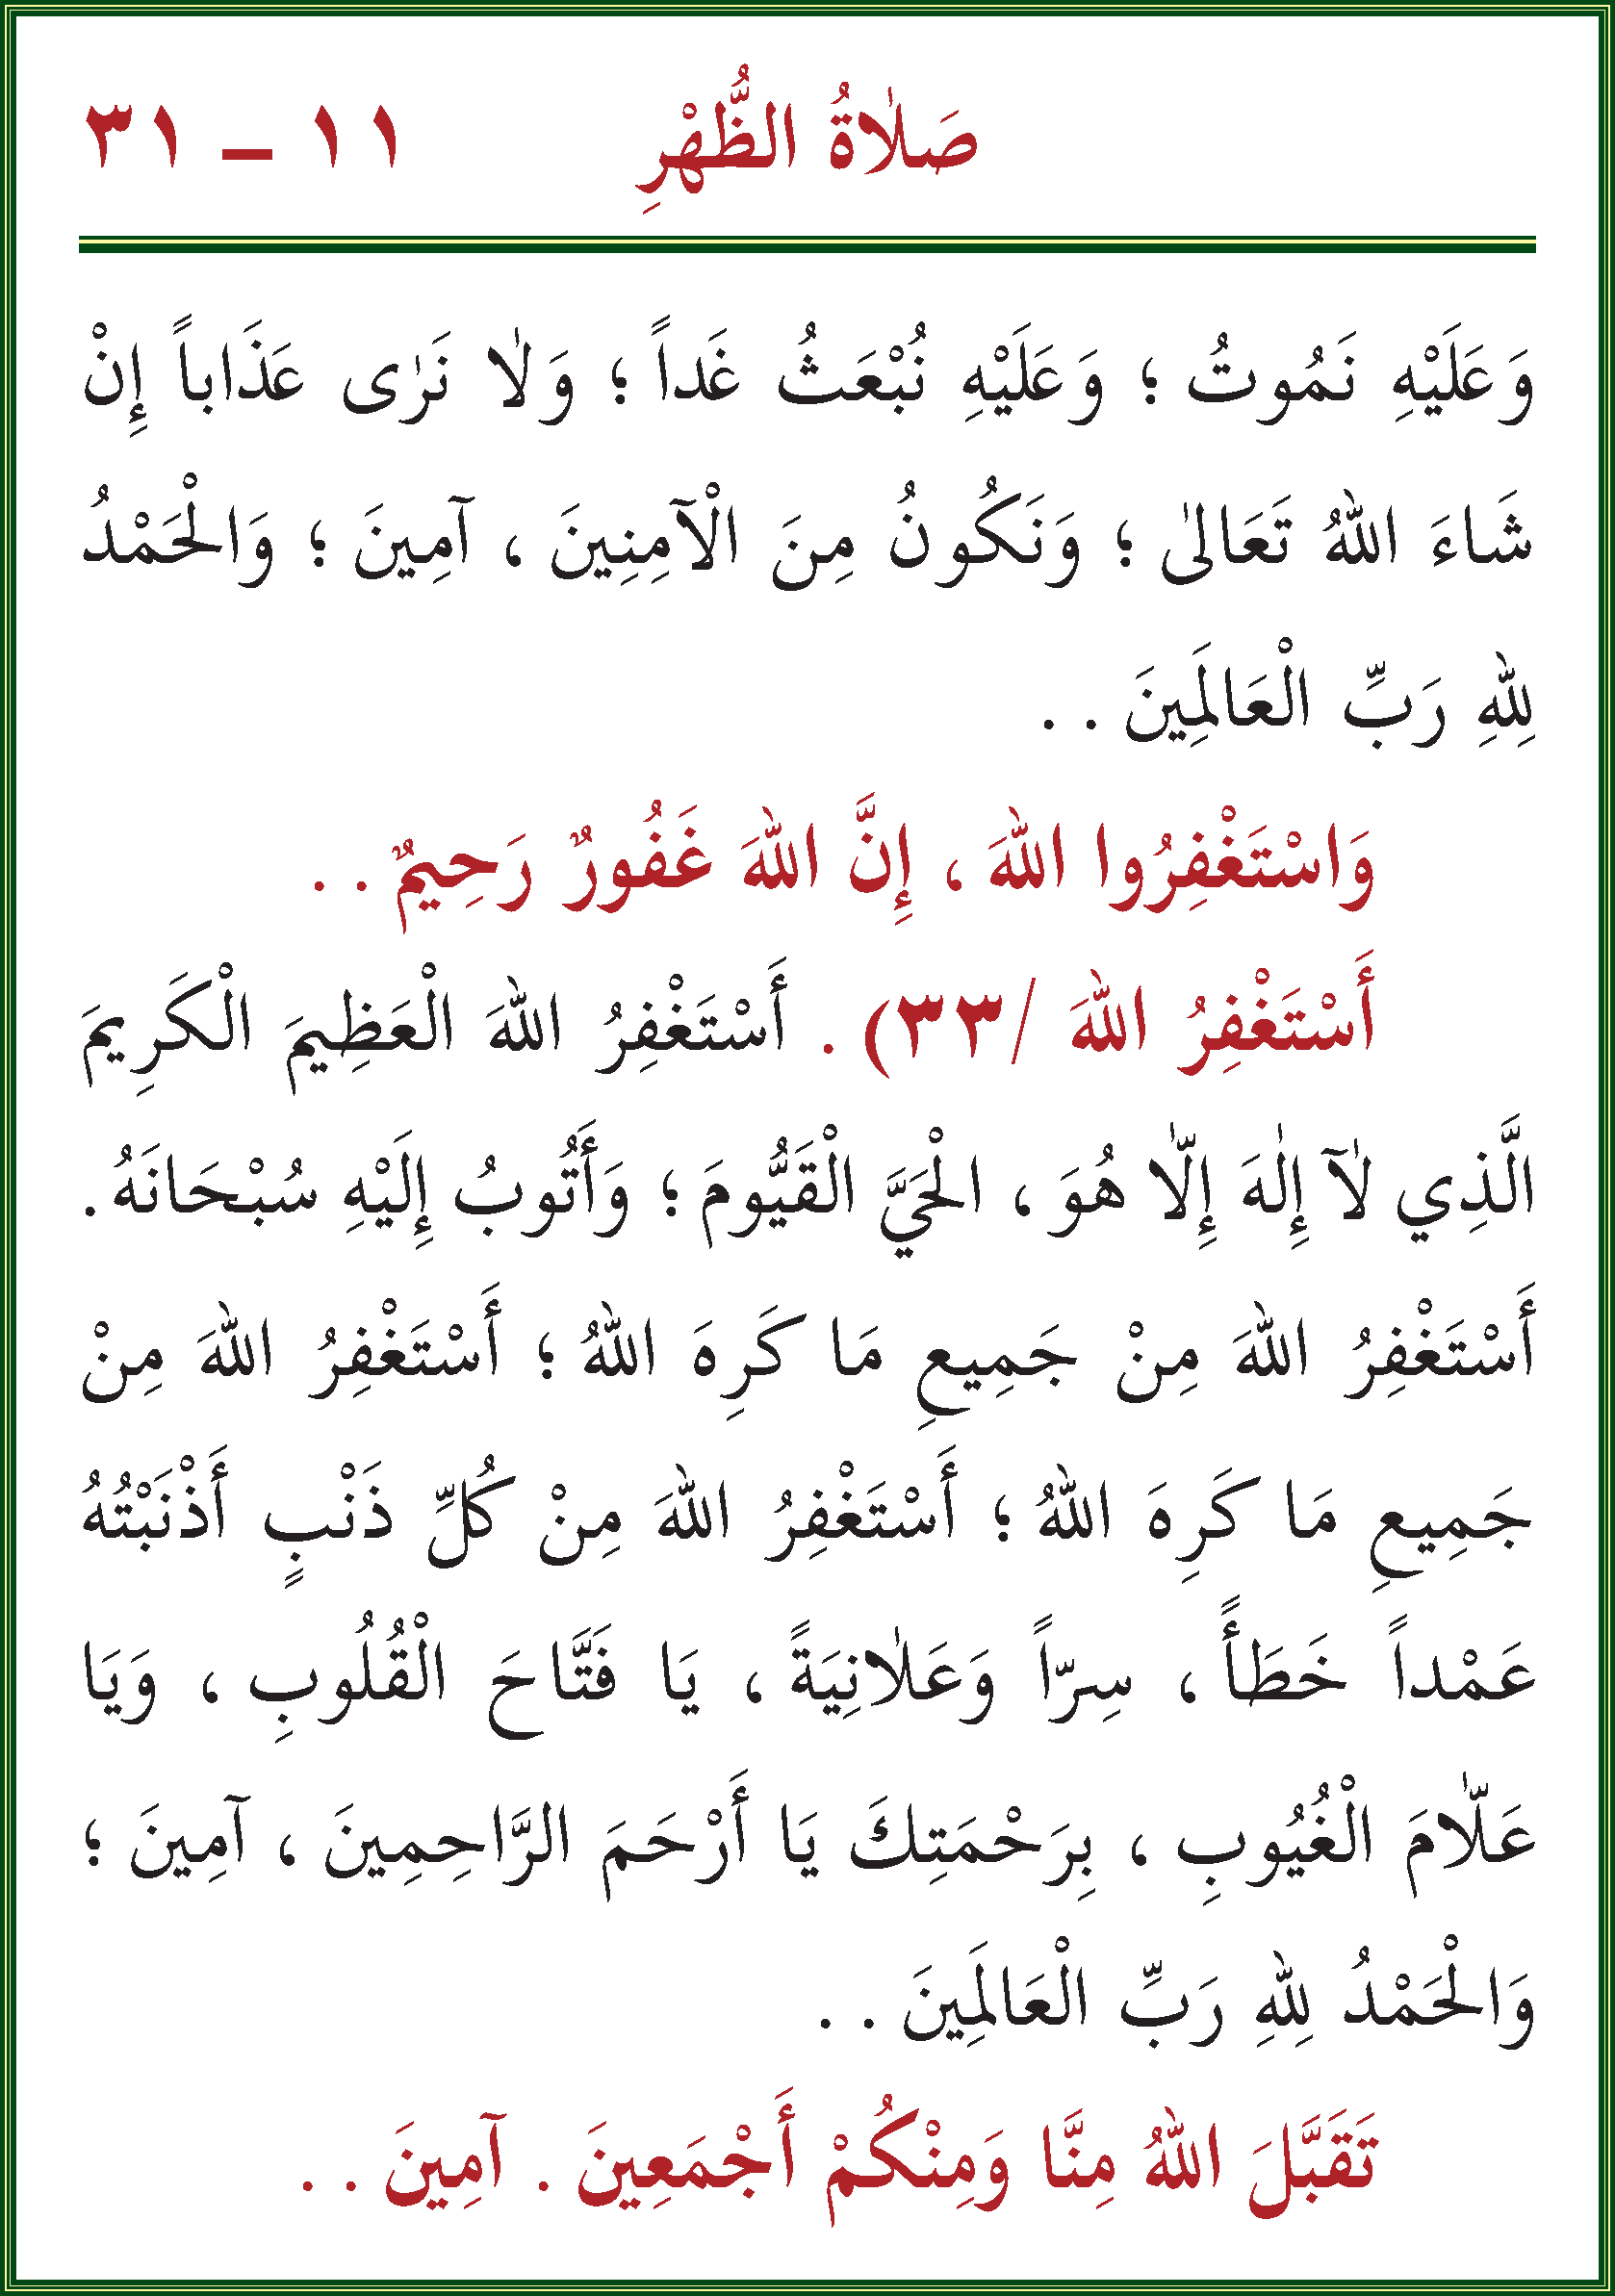 صَلٰاةُ الظُّهْرِ ١١ – ٣١
وَعَلَيْهِ نَمُوتُ ؛ وَعَلَيْهِ نُبْعَثُ غَداً ؛ وَلٰا نَرٰى عَذَاباً إِنْ
شَاءَ اللهُ تَعَالىٰ ؛ وَنَكُونُ مِنَ الْآمِنِينَ ، آمِينَ ؛ وَالْحَمْدُ
لِلهِ رَبِّ الْعَالَمِينَ . .
وَاسْتَغْفِرُوا اللهَ ، إِنَّ اللهَ غَفُورٌ رَحِيمٌ . .
أَسْتَغْفِرُ اللهَ /٣٣) . أَسْتَغْفِرُ اللهَ الْعَظِيمَ الْكَرِيمَ
الَّذِي لٰآ إِلٰهَ إِلّٰا هُوَ ، الْحَيَّ الْقَيُّومَ ؛ وَأَتُوبُ إِلَيْهِ سُبْحَانَهُ .
أَسْتَغْفِرُ اللهَ مِنْ جَمِيعِ مَا كَرِهَ اللهُ ؛ أَسْتَغْفِرُ اللهَ مِنْ
جَمِيعِ مَا كَرِهَ اللهُ ؛ أَسْتَغْفِرُ اللهَ مِنْ كُلِّ ذَنْبٍ أَذْنَبْتُهُ
عَمْداً خَطَأً ، سِرّاً وَعَلٰانِيَةً ، يَا فَتَّاحَ الْقُلُوبِ ، وَيَا
عَلّٰامَ الْغُيُوبِ ، بِرَحْمَتِكَ يَا أَرْحَمَ الرَّاحِمِينَ ، آمِينَ ؛
وَالْحَمْدُ لِلهِ رَبِّ الْعَالَمِينَ . .
تَقَبَّلَ اللهُ مِنَّا وَمِنْكُمْ أَجْمَعِينَ . آمِينَ . .